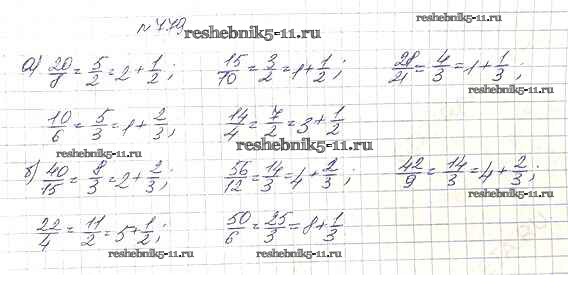 № 779 reshebnik5-11.ru reshebnik5-11.ru
а) 20/8 = 5/2 = 2 + 1/2; 15/10 = 3/2 = 1 + 1/2; 28/21 = 4/3 = 1 + 1/3;
reshebnik5-11.ru
10/6 = 5/3 = 1 + 2/3; 14/4 = 7/2 = 3 + 1/2
reshebnik5-11.ru reshebnik5-11.ru
б) 40/15 = 8/3 = 2 + 2/3; 56/12 = 14/3 = 4 + 2/3; 42/9 = 14/3 = 4 + 2/3;
reshebnik5-11.ru reshebnik5-11.ru
22/4 = 11/2 = 5 + 1/2; 50/6 = 25/3 = 8 + 1/3
reshebnik5-11.ru reshebnik5-11.ru